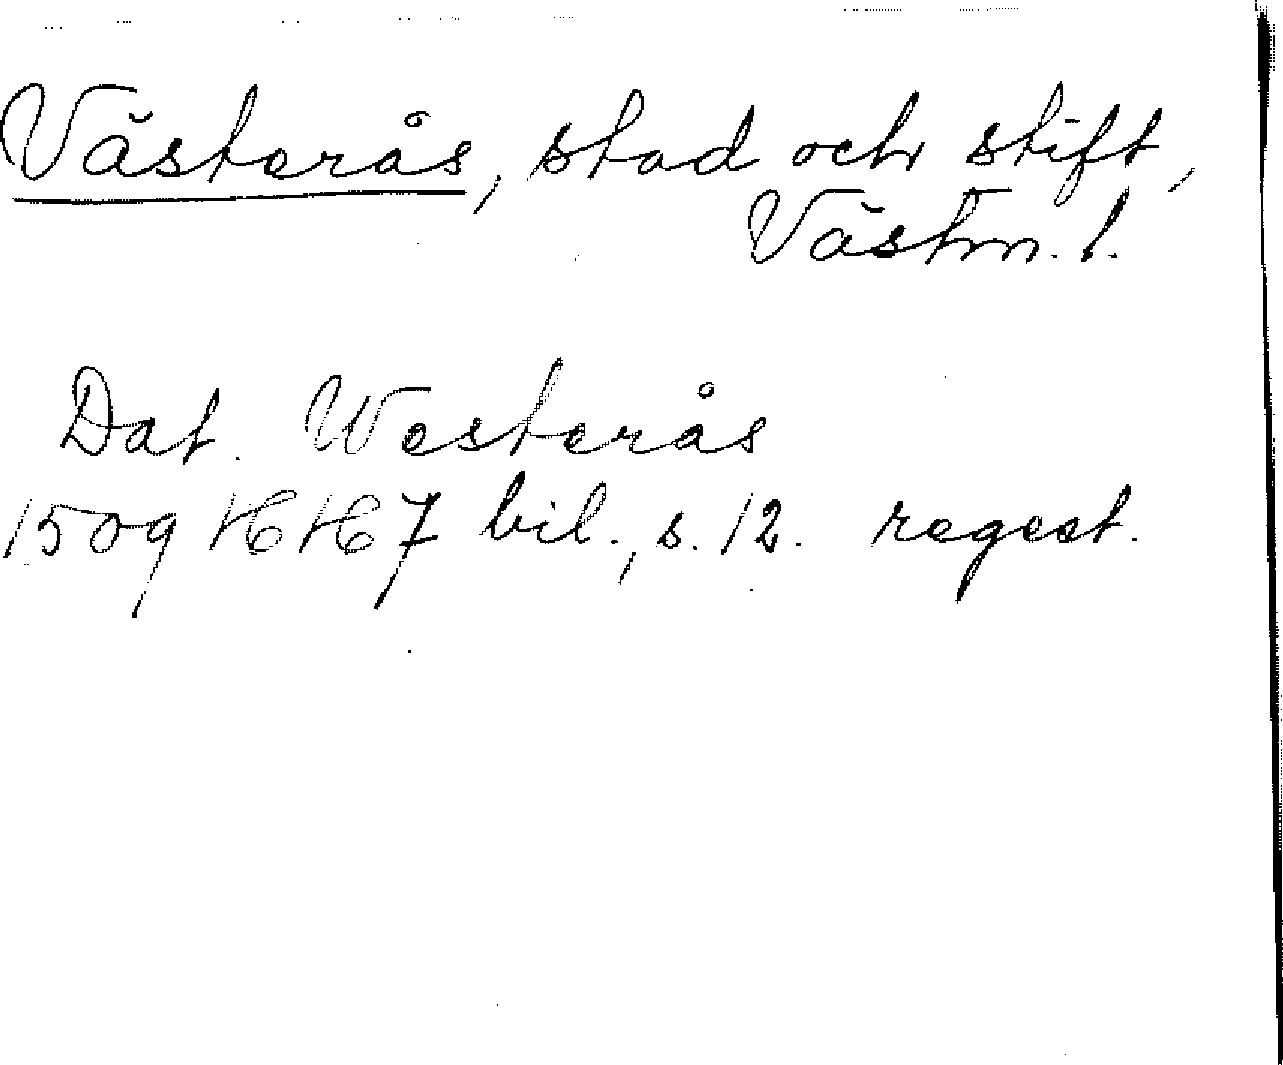 Västerås, stad och stift,
Västm. l.
Dat. Westerås
1509 HH 7 bil., s. 12. regest.